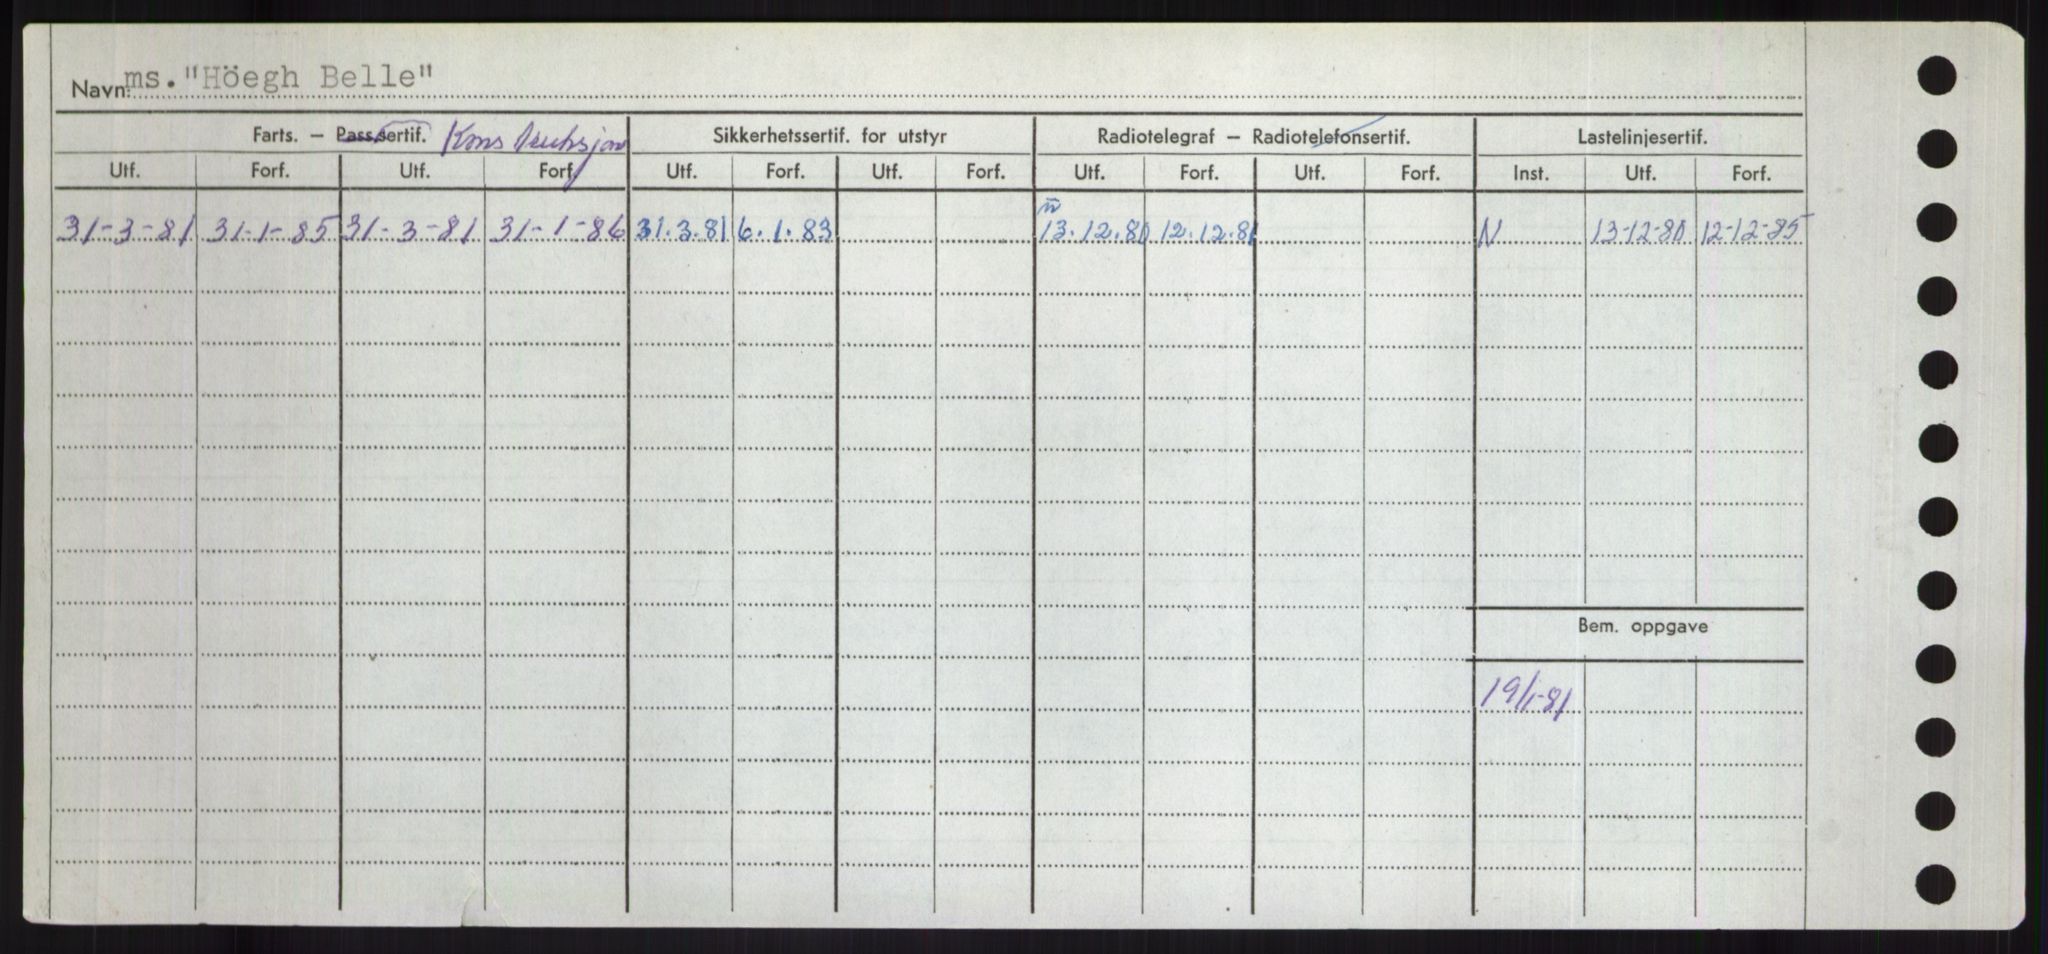 Navn: ms. "Höegh Belle"
Farts. – Passsertif. Konstruksjon Sikkerhetssertif. for utstyr Radiotelegraf – Radiotelefonsertif. Lastelinjesertif.
Utf. Forf. Utf. Forf. Utf. Forf. Utf. Forf. Utf. Forf. Utf. Forf. Inst. Utf. Forf.
31-3-81 31-1-85 31-3-81 31-1-86 31.3.81 6.1.83 13.12.80 12.12.81 N 13-12-80 12-12-85
Bem. oppgave
19/1-81